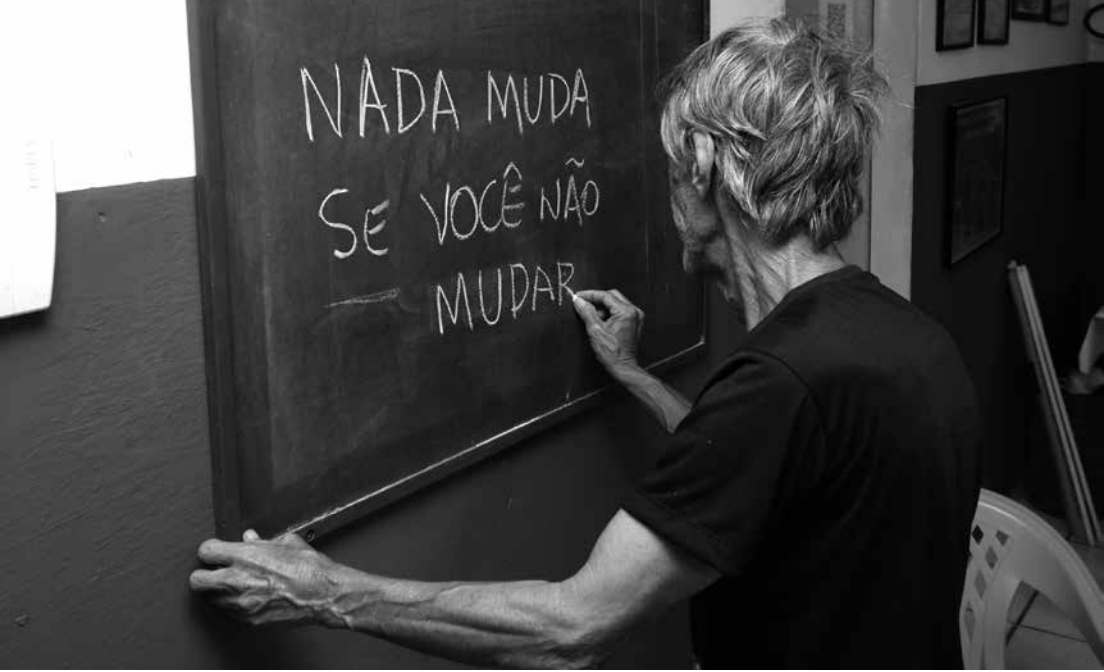 NADA MUDA
SE VOCÊ NÃO
MUDAR